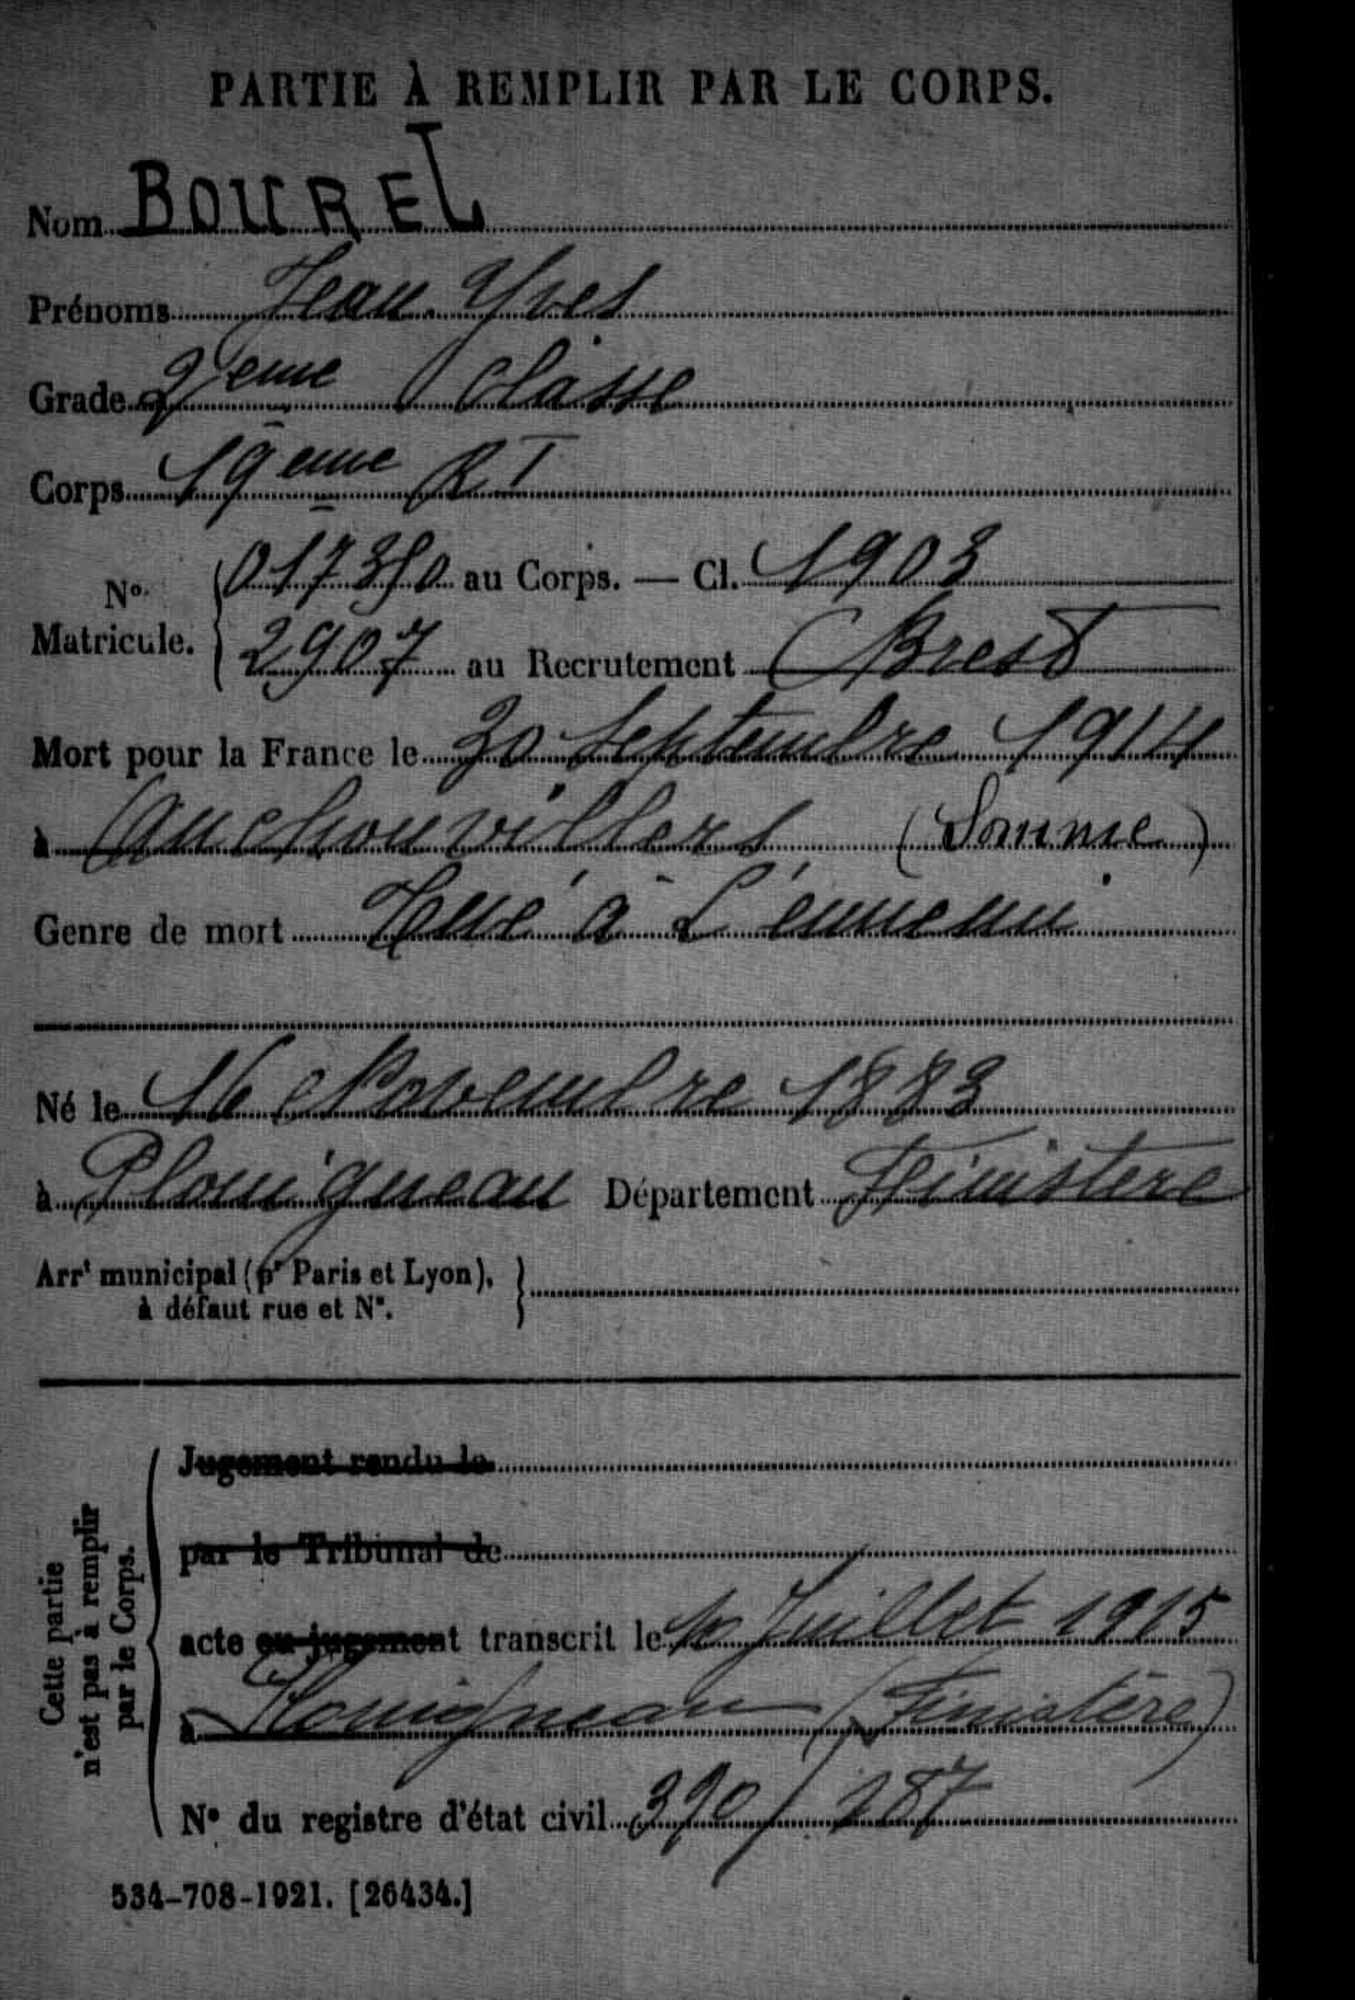 PARTIE À REMPLIR PAR LE CORPS.
Nom BOUREL
Prénoms Jean Yves
Grade 2eme Classe
Corps 19eme R I
No. Matricule. 017350 au Corps. — Cl. 1903
2907 au Recrutement Brest
Mort pour la France le 30 Septembre 1914
à Auchonvillers (Somme)
Genre de mort Tué à l'ennemi
Né le 16 Novembre 1883
à Plouigneau Département Finistere
Arrt municipal (pr Paris et Lyon),
à défaut rue et N°.
Cette partie
n'est pas à remplir
par le Corps.
Jugement rendu le
par le Tribunal de
acte ou jugement transcrit le 10 Juillet 1915
à Plouigneau (Finistère)
N° du registre d'état civil 390/287
534-708-1921. [26434.]